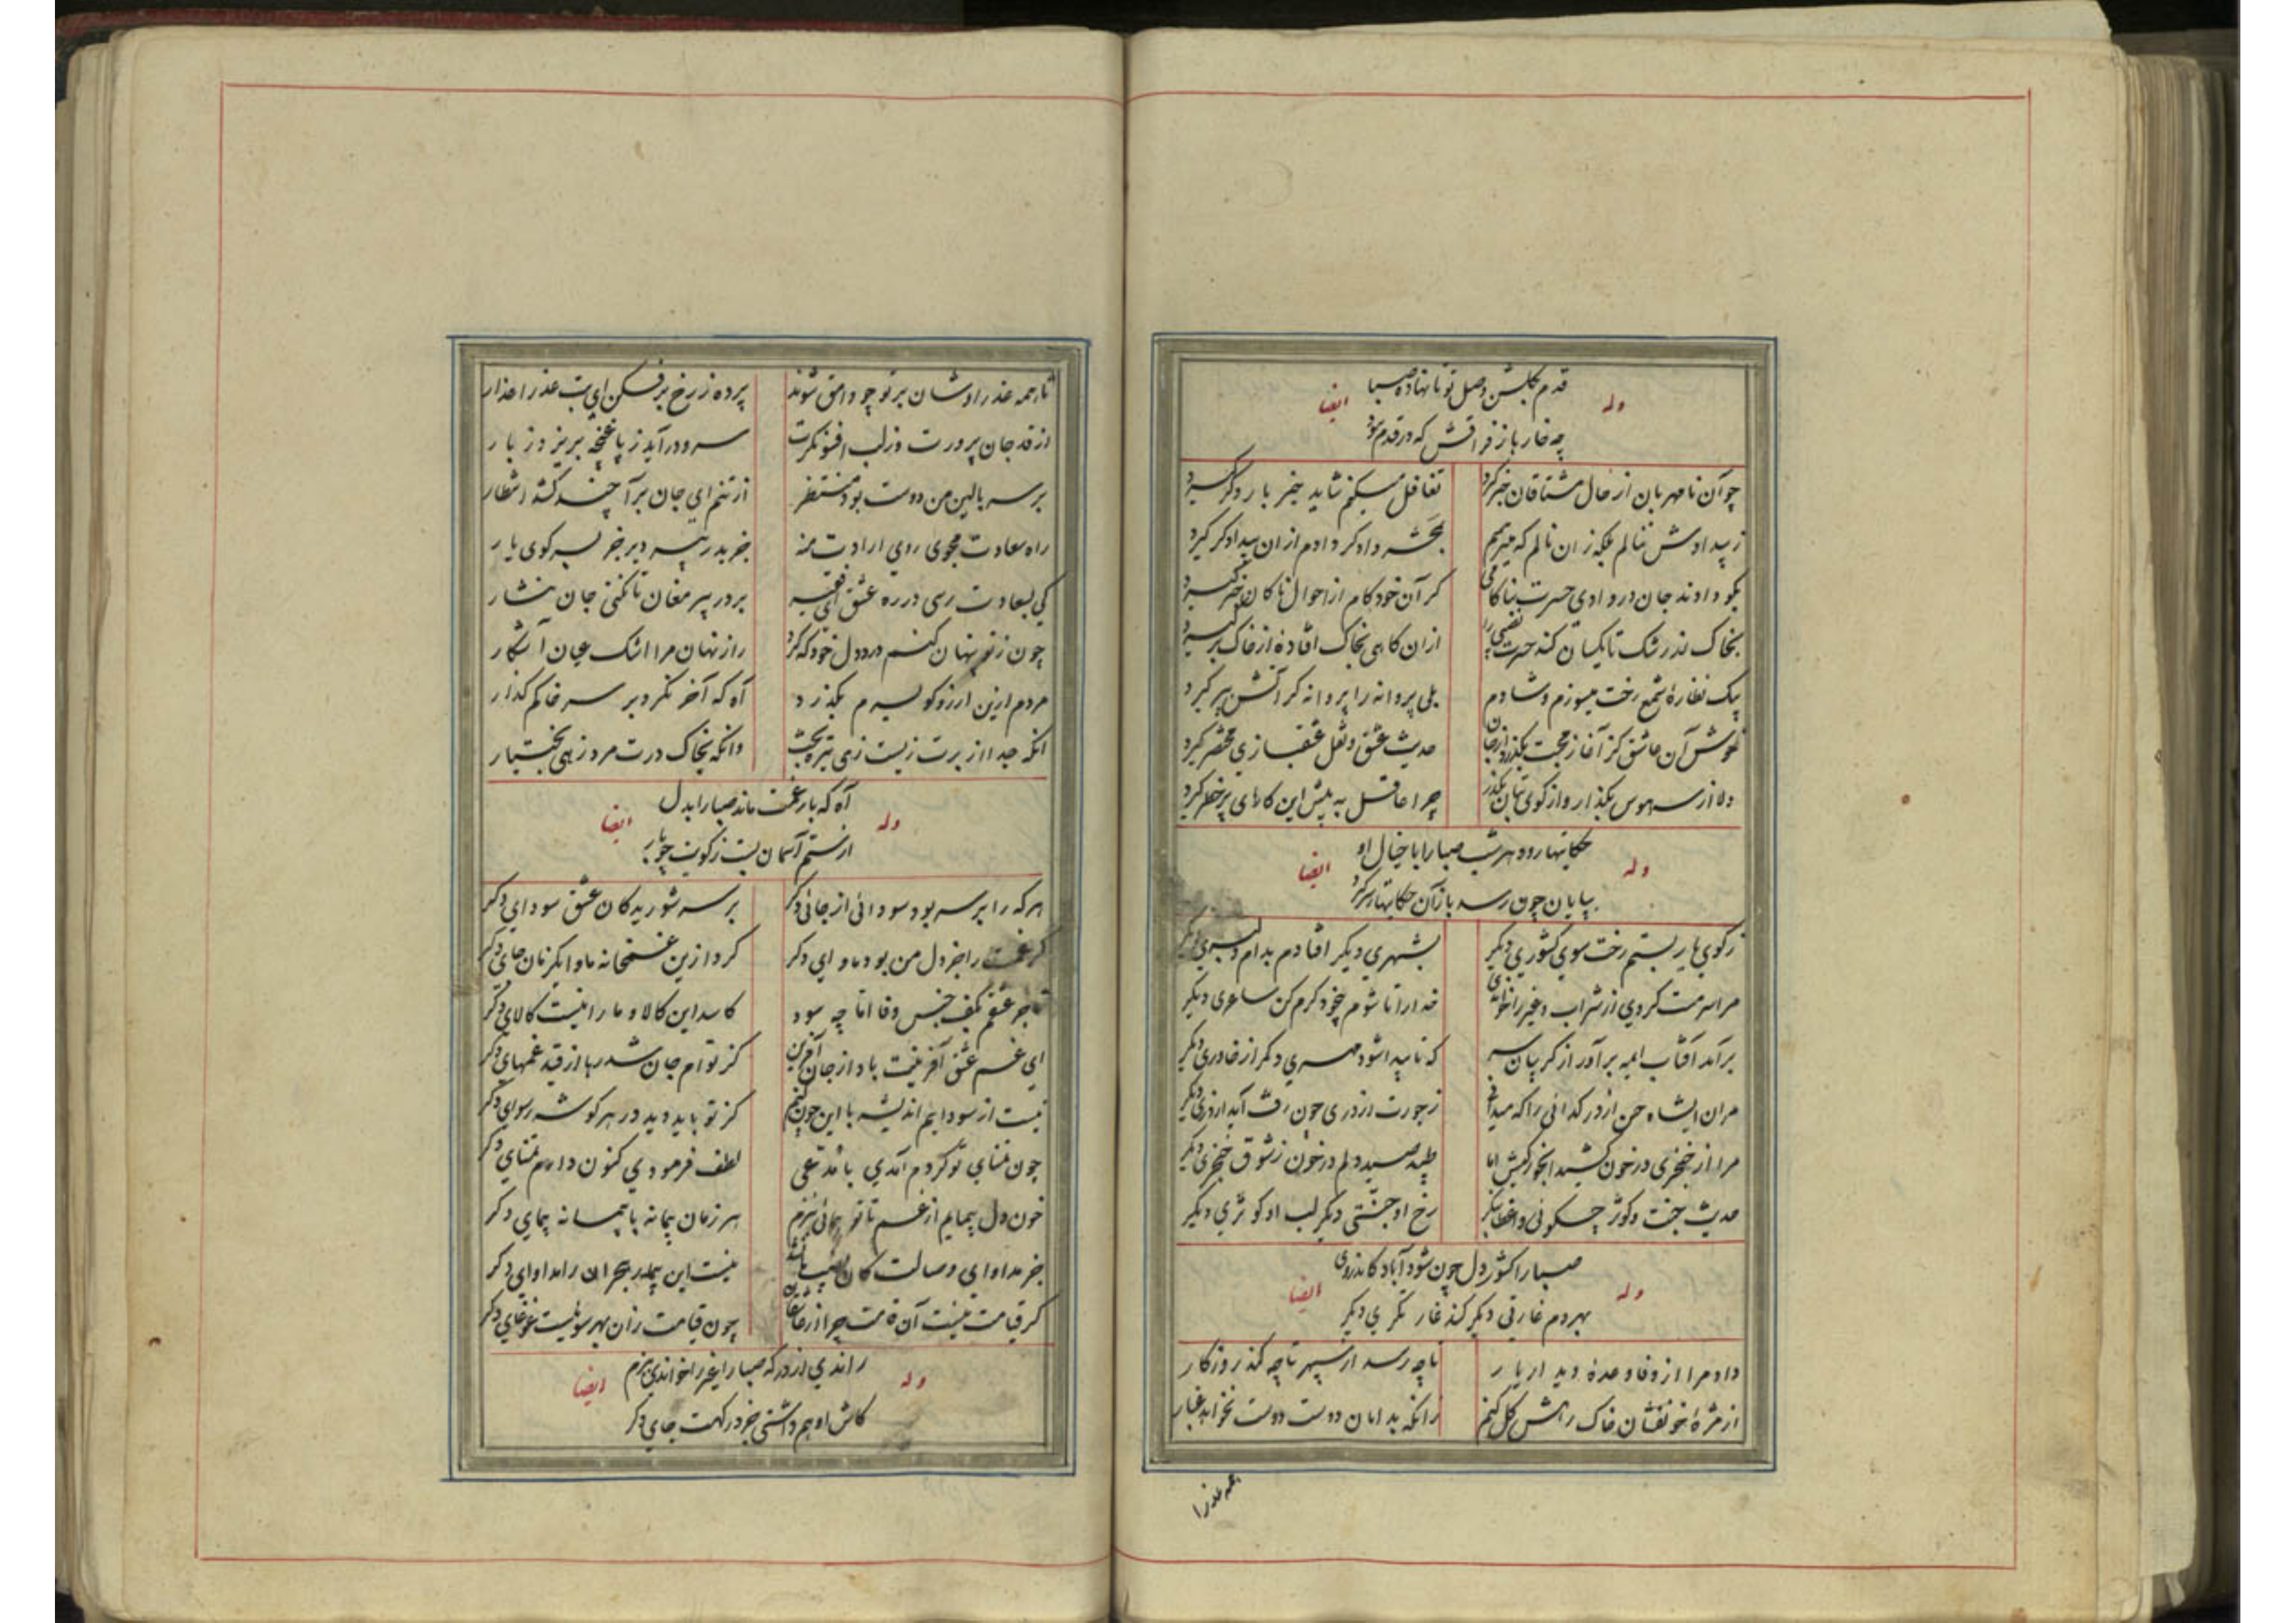 قدم بگلشن وصل تو نانهاده صبا
وله ایضا
چه خارها ز فراقش که در قدم دارد
چو آن نامهربان از حال مشتاقان خبر گیرد تغافل میکنم شاید خبر بار دگر گیرد
ز بیدادش ننالم بلکه زان نالم که میترسم بحشر دادگر دادم ازان بیدادگر گیرد
نکو دادند جان در وادی حسرت بناکامی گر آن خودکام از احوال ناکامان خبر گیرد
بخاک اندر شک تا یکسان کند حسرت نصیبی را ازان گاهی بخاک افتاده از خاک برگیرد
بیک نظاره شمع رخت میسوزم و شادم بلی پروانه را پروانه گر آتش بپر گیرد
خوش آن عاشق کز آغاز محبت بگذرد از جان حدیث عشق و نقل عشقبازی مختصر گیرد
دلا از سر هوس بگذار و از کوی بتان بگذر چرا عاقل به پیش این کارهای پرخطر گیرد
حکایتها رود هر شب صبا را با خیال او
وله ایضا
بپایان چون رسد باز آن حکایتها ز سر گیرد
ز کوی یار بستم رخت سوی کشوری دیگر بشهری دیگر افتادم بدام دلبری دیگر
مرا سرمست کردی از شراب و غیر را خواندی خدا را تا شوم بیخود کرم کن ساغری دیگر
برآمد آفتاب ایمه برآور از گریبان سر که تا پیدا شود مهری دگر از خاوری دیگر
مران ایشاه حسن از در گدائی را که میدانی ز جورت از دری چون رفت آید از دری دیگر
مرا از خنجری در خون کشید انجور کیش اما طپد صید دلم در خون ز شوق خنجری دیگر
حدیث جنت و کوثر چه گوئی واعظا بنگر رخ او جنتی دیگر لب او کوثری دیگر
صبا را کشور دل چون شود آباد کاندر وی
وله ایضا
بهر دم غارتی دیگر کند غارتگری دیگر
داد مرا از وفا وعده دیدار یار تا چه رسد از سپهر تا چه کند روزگار
از مژه خونفشان خاک رهش گل کنم زانکه بدامان دوست دوست نخواهد غبار
همه عذرا
تا همه عذرا وشان بر تو چو وامق شوند پرده ز رخ برفکن ای بت عذرا عذار
از قد جان پرورت وز لب افسونگرت سرو درآید ز پا غنچه بریزد ز بار
بر سر بالین من دوست بود منتظر از تنم ای جان برآ چند کشد انتظار
راه سعادت مجوی رای ارادت منه جز بدر پیر دیر جز بسر کوی یار
کی بسعادت رسی در ره عشق ای فقیه بر در پیر مغان تا نکنی جان نثار
چون ز تو پنهان کنم درد دل خود که کرد راز نهان مرا اشک عیان آشکار
مردم ازین ارزو کو بسرم بگذرد آه که آخر نکرد بر سر خاکم گذار
انکه جدا از برت زیست زهی تیره بخت وانکه بخاک درت مرد زهی بختیار
آه که بار غمت ماند صبا را بدل
وله ایضا
از ستم آسمان بست ز کویت چو بار
هر که را بر سر بود سودائی از جائی دگر بر سر شوریدگان عشق سودای دگر
گر غمت را جز دل من بود ماوای دگر کرد ازین غمخانه ماوا یکزمان جای دگر
تاجر عشقم بکف جنس وفا اما چه سود کاسد این کالا و ما را نیست کالای دگر
ای غم عشق آفرینت باد از جان آفرین کز توام جان شد رها از قید غمهای دگر
نیست از سودایم اندیشه با این چون کنم کز تو باید دید در هر گوشه رسوای دگر
چون تمنای تو کردم آمدی با مدعی لطف فرمودی کنون دارم تمنای دگر
خون دل پیمایم از غم تا تو پیمائی ببزم هر زمان پیمانه با پیمانه پیمای دگر
جز مداوای وصالت کان نصیب نیست این بیمار هجران را مداوای دگر
گر قیامت نیست آن قامت چرا از عاشقان چون قیامت زان بهر سوئیست غوغای دگر
راندی از درگه صبا را غیر را خواندی ببزم
وله ایضا
کاش او هم داشتی جز درگهت جای دگر